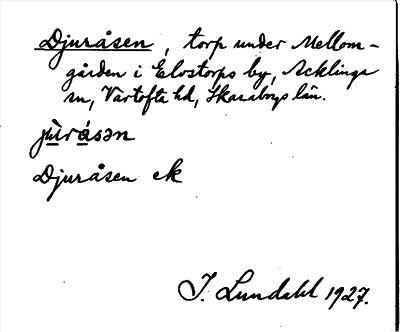 Djuråsen, torp under Mellom-
gården i Elostorps by, Acklinga
sn, Vartofta hd, Skaraborgs län.
jùrásən
Djuråsen ek
I. Lundahl 1927.